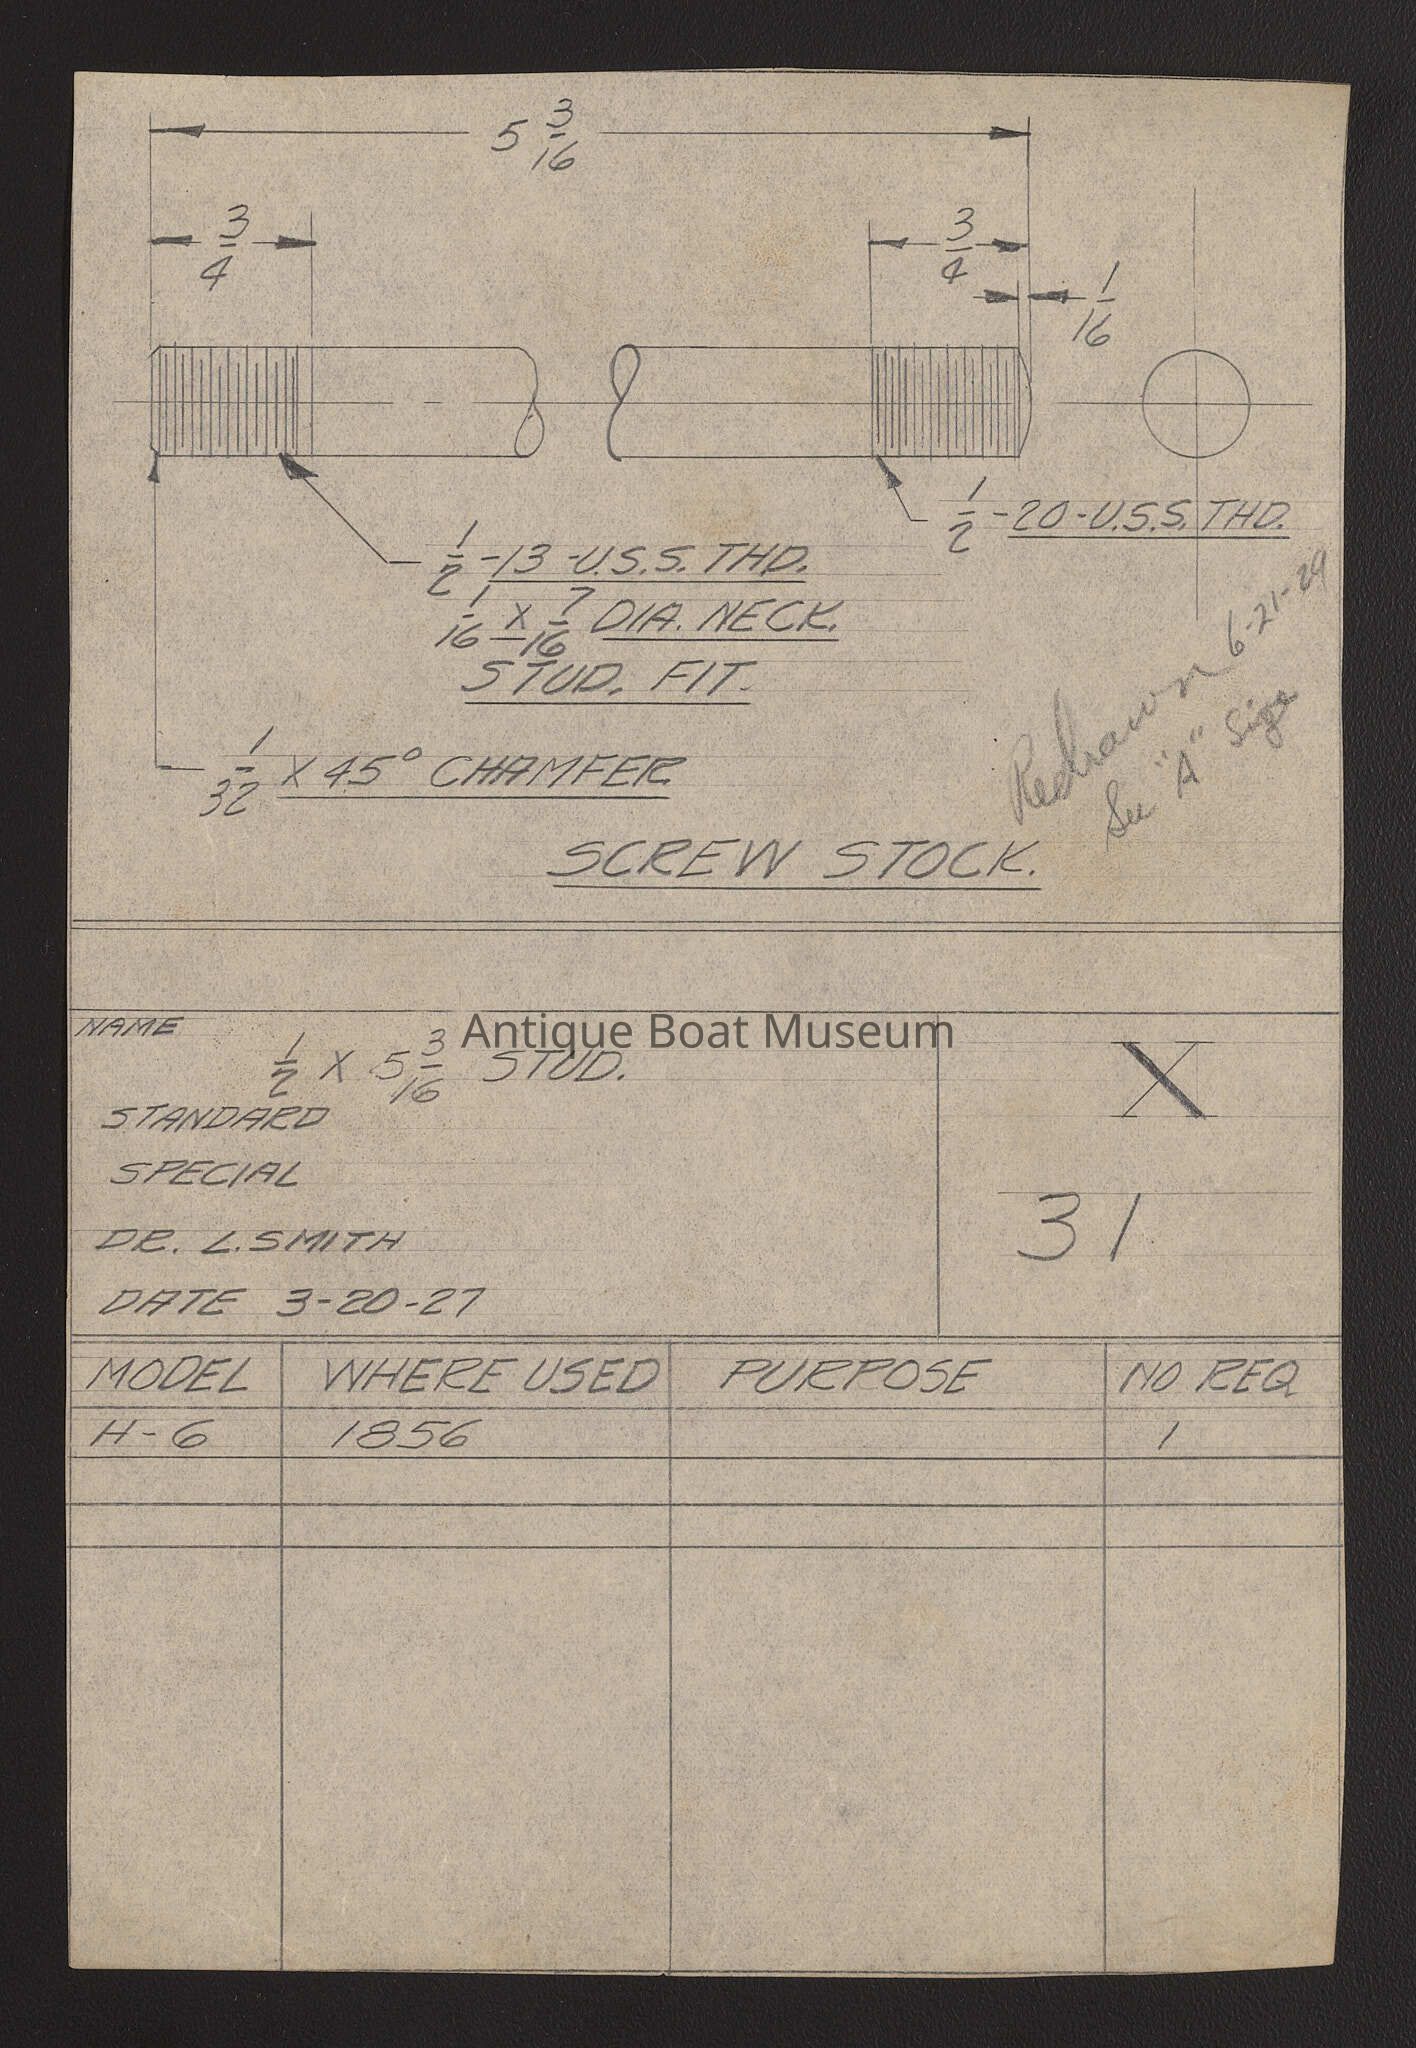 5 3/16
3/4
3/4
1/16
1/2-20-U.S.S. THD.
1/2-13-U.S.S. THD.
1/16 X 7/16 DIA. NECK.
STUD. FIT.
1/32 X 45° CHAMFER
Redrawn 6-21-29
See "A" Size
SCREW STOCK.
Antique Boat Museum
NAME
1/2 X 5 3/16 STUD.
X
STANDARD
SPECIAL
31
DR. L. SMITH
DATE 3-20-27
MODEL WHERE USED PURPOSE NO REQ
H-6 1856 1